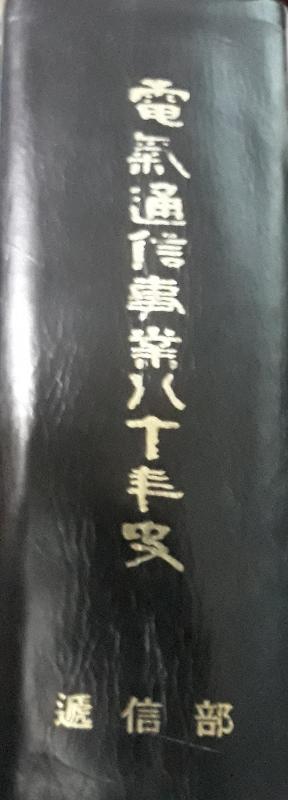 電氣通信事業八十年史
遞信部